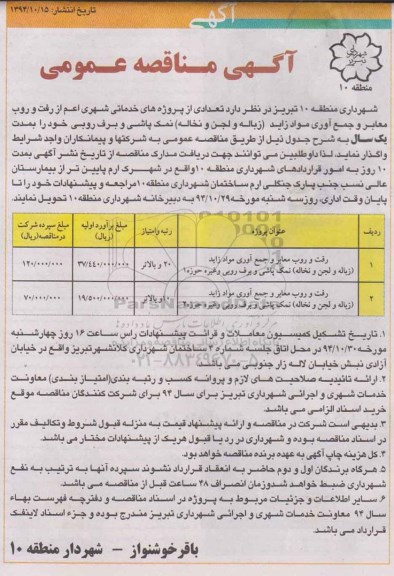 تاریخ انتشار: ۱۳۹۳/۱۰/۱۵
آگهی
آگهی مناقصه عمومی
شهرداری تبریز
منطقه ۱۰
شهرداری منطقه ۱۰ تبریز در نظر دارد تعدادی از پروژه های خدماتی شهری اعم از رفت و روب
معابر و جمع آوری مواد زاید (زباله و لجن و نخاله) نمک پاشی و برف روبی خود را بمدت
یک سال به شرح جدول ذیل از طریق مناقصه عمومی به شرکتها و پیمانکاران واجد شرایط
واگذار نماید، لذا داوطلبین می توانند جهت دریافت مدارک مناقصه از تاریخ نشر آگهی بمدت
۱۰ روز به امور قراردادهای شهرداری منطقه ۱۰ واقع در شهرک ارم پایین تر از بیمارستان
عالی نسب جنب پارک جنگلی ارم ساختمان شهرداری منطقه ۱۰ مراجعه و پیشنهادات خود را تا
پایان وقت اداری، روز سه شنبه مورخه ۹۳/۱۰/۲۹ به دبیرخانه شهرداری منطقه ۱۰ تحویل نمایند.
ردیف عنوان پروژه رتبه وامتیاز مبلغ برآورد اولیه (ریال) مبلغ سپرده شرکت در مناقصه (ریال)
۱ رفت و روب معابر و جمع آوری مواد زاید (زباله و لجن و نخاله) نمک پاشی و برف روبی وغیره حوزه ۱ ۲۰ و بالاتر ۳۷/۴۴۰/۰۰۰/۰۰۰ ۱۲۰/۰۰۰/۰۰۰
۲ رفت و روب معابر و جمع آوری مواد زاید (زباله و لجن و نخاله) نمک پاشی و برف روبی وغیره حوزه ۲ ۱۰ و بالاتر ۱۹/۵۰۰/۰۰۰/۰۰۰ ۷۰/۰۰۰/۰۰۰
۱. تاریخ تشکیل کمیسیون معاملات و قرائت پیشنهادات راس ساعت ۱۶ روز چهارشنبه
مورخه ۹۳/۱۰/۳۰ در محل اتاق جلسه شماره ۲ ساختمان شهرداری کلانشهر تبریز واقع در خیابان
آزادی نبش خیابان لاله زار جنوبی می باشد.
۲. ارائه تائیدیه صلاحیت های لازم و پروانه کسب و رتبه بندی (امتیاز بندی) معاونت
خدمات شهری و اجرائی شهرداری تبریز برای سال ۹۳ برای شرکت کنندگان مناقصه موقع
خرید اسناد الزامی می باشد.
۳. بدیهی است شرکت در مناقصه و ارائه پیشنهاد قیمت به منزله قبول شروط و تکالیف مقرر
در اسناد مناقصه بوده و شهرداری در رد یا قبول هریک از پیشنهادات مختار می باشد.
۴. کل هزینه چاپ آگهی به عهده برنده مناقصه خواهد بود.
۵. هرگاه برندگان اول و دوم حاضر به انعقاد قرارداد نشوند سپرده آنها به ترتیب به نفع
شهرداری ضبط خواهد شد وزمان انصراف ۴۸ ساعت قبل از مناقصه می باشد.
۶. سایر اطلاعات و جزئیات مربوط به پروژه در اسناد مناقصه و دفترچه فهرست بهاء
سال ۹۳ معاونت خدمات شهری و اجرائی شهرداری تبریز مندرج بوده و جزء اسناد لاینفک
قرارداد می باشد.
باقر خوشنواز - شهردار منطقه ۱۰